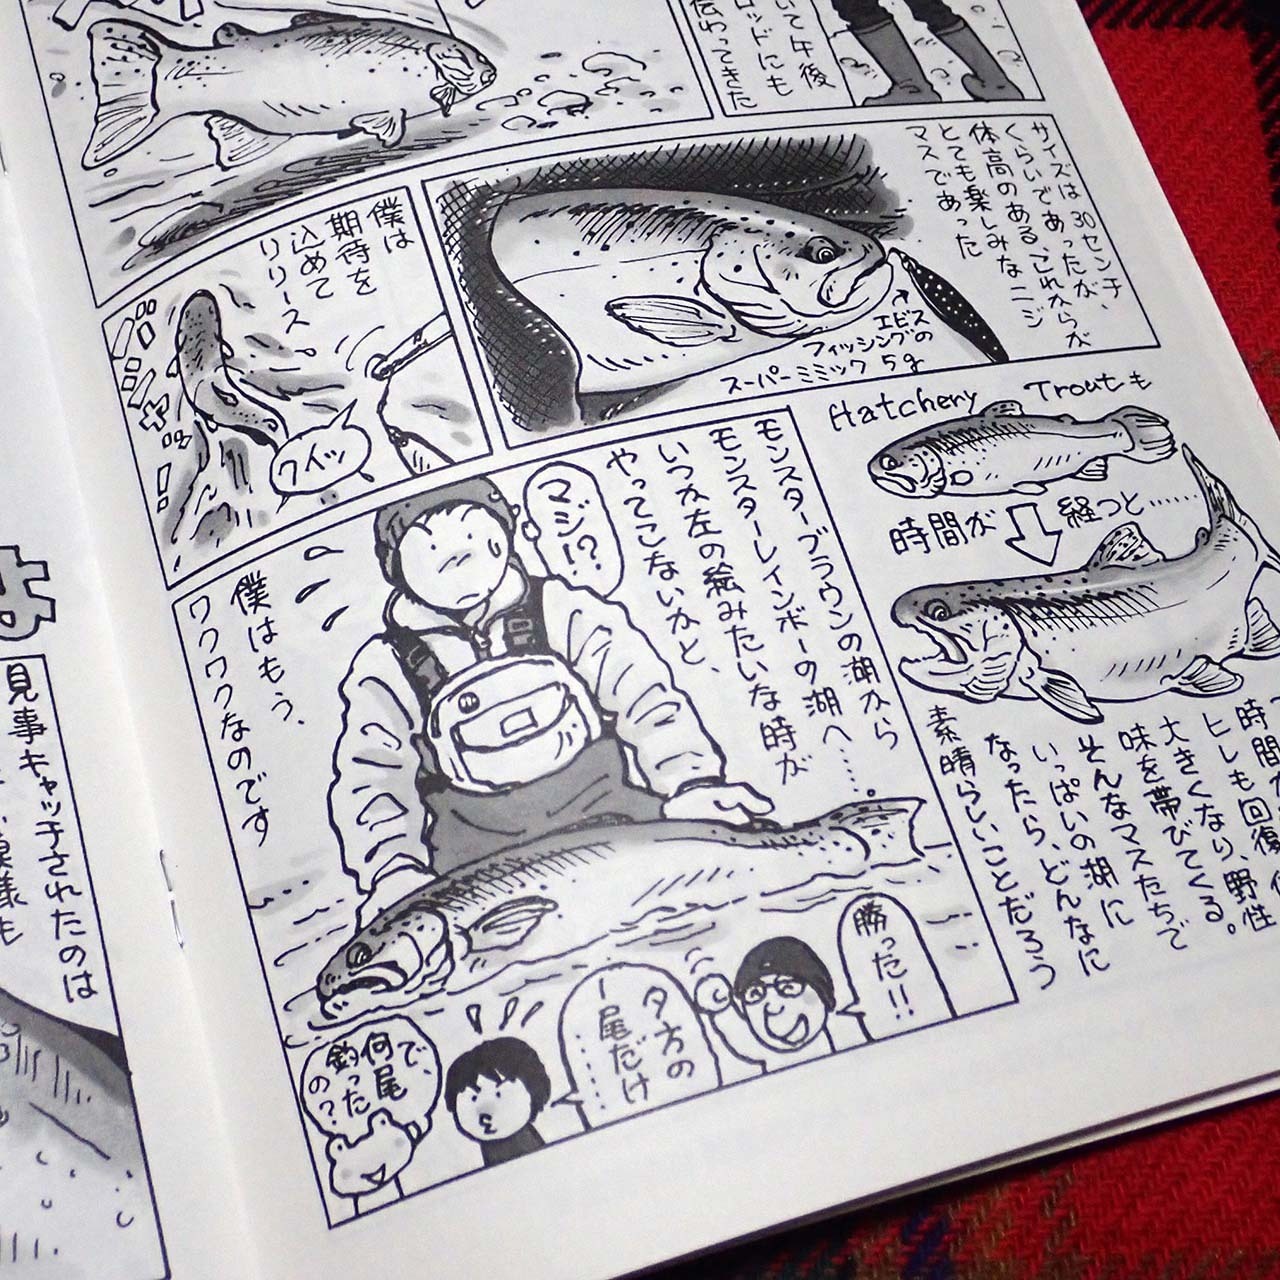 いて午後
ロッドにも
伝わってきた
サイズは30センチ
くらいであったが、
これからが
体高のある
とても楽しみなニジ
マスであった
エビス
フィッシングの
スーパーミミック 5g
僕は
期待を
込めて
リリース
クイッ
Hatchery Troutも
時間が経つと……
大きくなり、野性
味を帯びてくる。
そんなマスたちで
いっぱいの湖に
なったら、どんなに
素晴らしいことだろう
モンスターブラウンの湖から
モンスターレインボーの湖へ……。
いつか左の絵みたいな時が
やってこないかと、
マジ!?
僕はもう、
ワクワクなのです
勝った!!
夕方の
一尾だけ
……
で、
何尾
釣った
の?
よ
見事キャッチされたのは
模様も